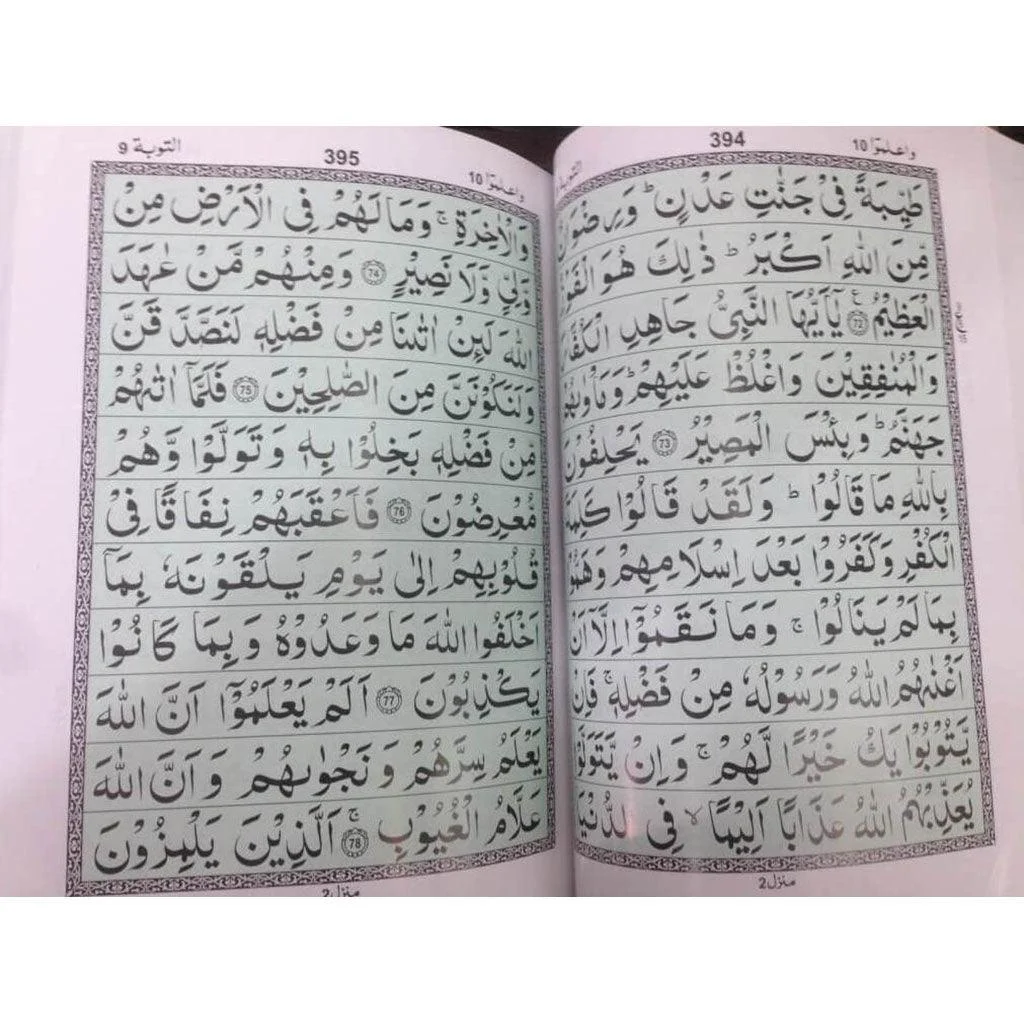 394
واعلموٓا 10
طَيِّبَةً فِىْ جَنّٰتِ عَدْنٍ ؕ وَرِضْوَانٌ
مِّنَ اللّٰهِ اَكْبَرُ ؕ ذٰلِكَ هُوَ الْفَوْزُ
الْعَظِيْمُ ع 72 يٰۤاَيُّهَا النَّبِىُّ جَاهِدِ الْكُفَّارَ
وَالْمُنٰفِقِيْنَ وَاغْلُظْ عَلَيْهِمْ ؕ وَمَاْوٰىهُمْ
جَهَنَّمُ ؕ وَبِئْسَ الْمَصِيْرُ 73 يَحْلِفُوْنَ
بِاللّٰهِ مَا قَالُوْا ؕ وَلَقَدْ قَالُوْا كَلِمَةَ
الْكُفْرِ وَكَفَرُوْا بَعْدَ اِسْلَامِهِمْ وَهَمُّوْا
بِمَا لَمْ يَنَالُوْا ۚ وَمَا نَقَمُوْۤا اِلَّاۤ اَنْ
اَغْنٰىهُمُ اللّٰهُ وَرَسُوْلُهٗ مِنْ فَضْلِهٖ ۚ فَاِنْ
يَّتُوْبُوْا يَكُ خَيْرًا لَّهُمْ ۚ وَاِنْ يَّتَوَلَّوْا
يُعَذِّبْهُمُ اللّٰهُ عَذَابًا اَلِيْمًا ۙ فِى الدُّنْيَا
منزل 2
التوبة 9
395
واعلموٓا 10
وَالْاٰخِرَةِ ۚ وَمَا لَهُمْ فِى الْاَرْضِ مِنْ
وَّلِىٍّ وَّلَا نَصِيْرٍ 74 وَمِنْهُمْ مَّنْ عٰهَدَ
اللّٰهَ لَئِنْ اٰتٰىنَا مِنْ فَضْلِهٖ لَنَصَّدَّقَنَّ
وَلَنَكُوْنَنَّ مِنَ الصّٰلِحِيْنَ 75 فَلَمَّاۤ اٰتٰىهُمْ
مِّنْ فَضْلِهٖ بَخِلُوْا بِهٖ وَتَوَلَّوْا وَّهُمْ
مُّعْرِضُوْنَ 76 فَاَعْقَبَهُمْ نِفَاقًا فِىْ
قُلُوْبِهِمْ اِلٰى يَوْمِ يَلْقَوْنَهٗ بِمَاۤ
اَخْلَفُوا اللّٰهَ مَا وَعَدُوْهُ وَبِمَا كَانُوْا
يَكْذِبُوْنَ 77 اَلَمْ يَعْلَمُوْۤا اَنَّ اللّٰهَ
يَعْلَمُ سِرَّهُمْ وَنَجْوٰىهُمْ وَاَنَّ اللّٰهَ
عَلَّامُ الْغُيُوْبِ ۚ 78 اَلَّذِيْنَ يَلْمِزُوْنَ
منزل 2